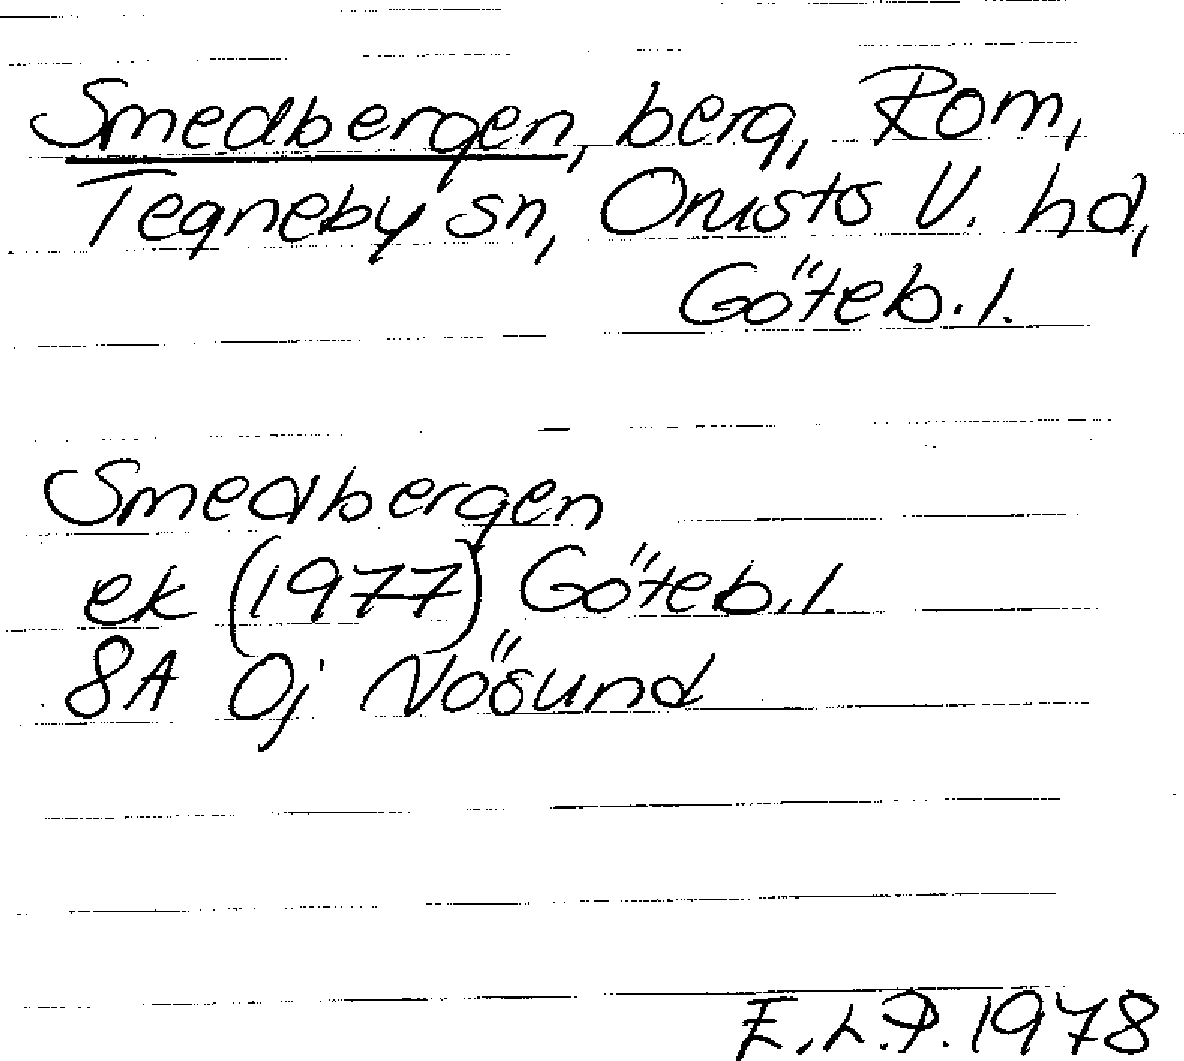 Smedbergen, berg, Rom,
Tegneby sn, Orusts V. hd,
Göteb. l.
Smedbergen
ek (1977) Göteb. l.
8A 0j Nösund
E.L.P. 1978